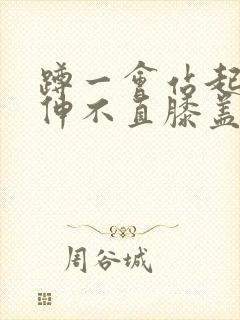 蹲一會站起
伸不直膝盖
周谷城